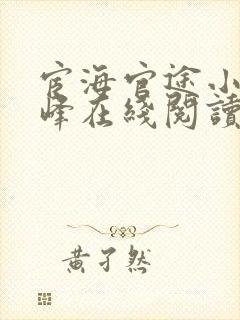 宦海官途小
峰在綫閱讀
黃孑然